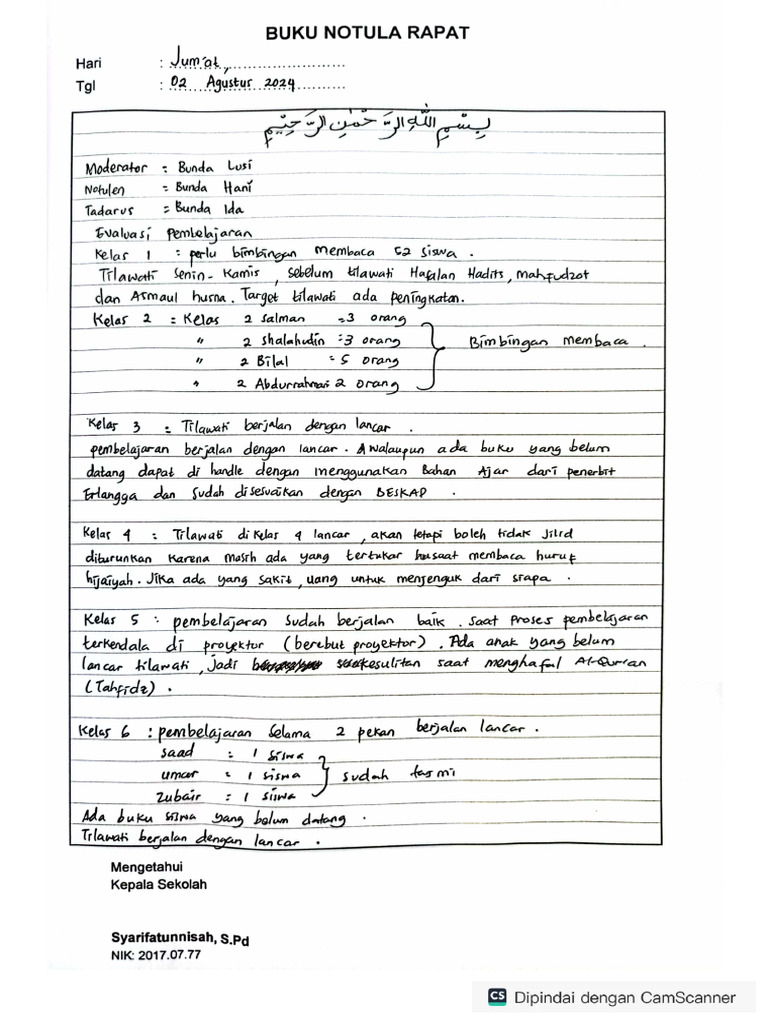 BUKU NOTULA RAPAT
Hari : Jum'at,
Tgl : 02 Agustus 2024
بِسْمِ اللهِ الرَّحْمٰنِ الرَّحِيْمِ
Moderator : Bunda Lusi
Notulen = Bunda Hani
Tadarus = Bunda Ida
Evaluasi Pembelajaran
Kelas 1 : perlu bimbingan membaca 52 siswa.
Tilawati Senin-Kamis, sebelum tilawati Hafalan Hadits, mahfudzot
dan Asmaul husna. Target tilawati ada peningkatan.
Kelas 2 = Kelas 2 Salman = 3 orang
" 2 Shalahudin = 3 orang Bimbingan membaca.
" 2 Bilal = 5 orang
" 2 Abdurrahman 2 orang
Kelas 3 = Tilawati berjalan dengan lancar.
pembelajaran berjalan dengan lancar. walaupun ada buku yang belum
datang dapat di handle dengan menggunakan Bahan Ajar dari penerbit
Erlangga dan sudah disesuaikan dengan BESKAP.
Kelas 4 : Tilawati di kelas 4 lancar, akan tetapi boleh tidak jilid
diturunkan karena masih ada yang tertukar saat membaca huruf
hijaiyah. Jika ada yang sakit, uang untuk menjenguk dari siapa.
Kelas 5 : pembelajaran sudah berjalan baik. saat proses pembelajaran
terkendala di proyektor (berebut proyektor). Ada anak yang belum
lancar tilawati, jadi kesulitan saat menghafal Al-Qur'an
(Tahfidz).
Kelas 6 : pembelajaran selama 2 pekan berjalan lancar.
saad : 1 siswa
umar = 1 siswa sudah tasmi
zubair : 1 siswa
Ada buku siswa yang belum datang.
Tilawati berjalan dengan lancar.
Mengetahui
Kepala Sekolah
Syarifatunnisah, S.Pd
NIK: 2017.07.77
CS Dipindai dengan CamScanner